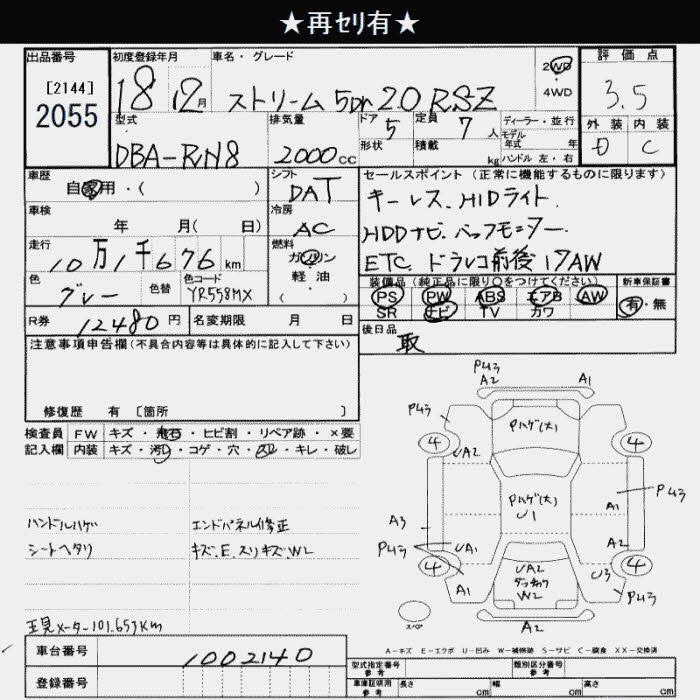 ★再セリ有★
出品番号
[2144]
2055
初度登録年月
18 12月
車名・グレード
ストリーム 5Dr 2.0 RSZ
2WD
・
4WD
評価点
3.5
外装 内装
D C
型式
DBA-RN8
排気量
2000cc
ドア
5
形状
定員
7人
積載
kg
ディーラー・並行
モデル
年式 年
ハンドル 左・右
車歴
自家用・( )
シフト
DAT
車検
年 月( 日)
冷房
AC
走行
10万1千676km
燃料
ガソリン
・
軽油
・
( )
色
グレー
色替
色コード
YR558MX
R券
12480円
名変期限 月 日
セールスポイント (正常に機能するものに限ります)
キーレス.HIDライト.
HDDナビ.バックモニター.
ETC.ドラレコ前後 17AW
装備品 (純正品に限り○をつけてください)
PS PW ABS エアB AW
SR ナビ TV カワ
新車保証書
有・無
後日品
取
注意事項申告欄(不具合内容等は具体的に記入して下さい)
修復歴 有 [箇所 ]
検査員 FW キズ・飛石・ヒビ割・リペア跡・×要
記入欄 内装 キズ・汚れ・コゲ・穴・スレ・キレ・破レ
ハンドルハゲ エンドパネル修正
シートヘタリ キズ.E.スリキズW2
現メーター101.653Km
P4 3
A2 A1
P4 3
Pハゲ(大)
4 4
UA2
Pハゲ(大)
U1
P4 3
A1
A3
A2
P4 3
UA1
4 4
UA2
W2
A1
U3
P4 3
A2
スペア
A-キズ E-エクボ U-凹み W-補修跡 S-サビ C-腐食 XX-交換済
車台番号
1002140
登録番号
型式指定番号
参考
類別区分番号
参考
車庫証明用
参考
長さ cm 幅 cm 高さ cm